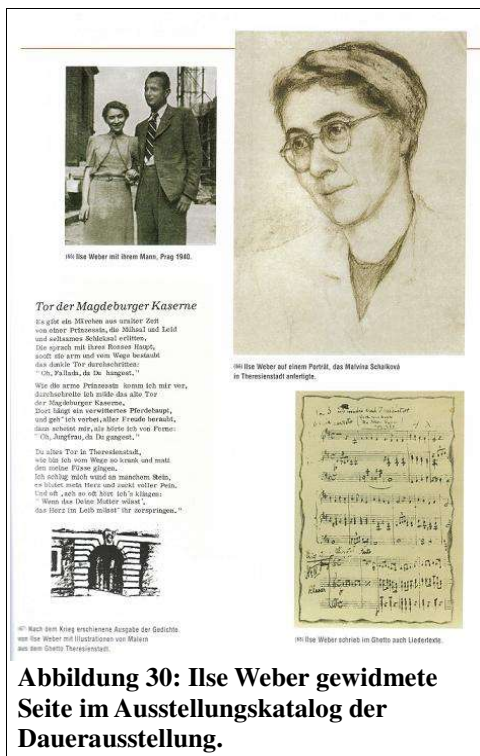 Ilse Weber mit ihrem Mann, Prag 1940.
Tor der Magdeburger Kaserne
Es gibt ein Märchen aus uralter Zeit
von einer Prinzessin, die Mühsal und Leid
und seltsames Schicksal erlitten.
Die sprach mit ihres Rosses Haupt,
sooft sie arm und vom Wege bestaubt
das dunkle Tor durchschritten:
"Oh, Fallada, da Du hangest."
Wie die arme Prinzessin komm ich mir vor,
durchschreite ich müde das alte Tor
der Magdeburger Kaserne.
Dort hängt ein verwittertes Pferdehaupt,
und geh' ich vorbei, aller Freude beraubt,
dann scheint mir, als hörte ich von Ferne:
"Oh, Jungfrau, da Du gangest."
Du altes Tor in Theresienstadt,
wie bin ich vom Wege so krank und matt
den meine Füsse gingen.
Ich schlug mich wund an manchem Stein,
es blutet mein Herz und zuckt voller Pein.
Und oft, ach so oft hört ich's klingen:
"Wenn das Deine Mutter wüsst',
das Herz im Leib müsst' ihr zerspringen."
Nach dem Krieg erschienene Ausgabe der Gedichte
von Ilse Weber mit Illustrationen von Malern
aus dem Ghetto Theresienstadt.
Ilse Weber auf einem Porträt, das Malvina Schalková
in Theresienstadt anfertigte.
Ilse Weber schrieb im Ghetto auch Liedertexte.
Abbildung 30: Ilse Weber gewidmete
Seite im Ausstellungskatalog der
Dauerausstellung.